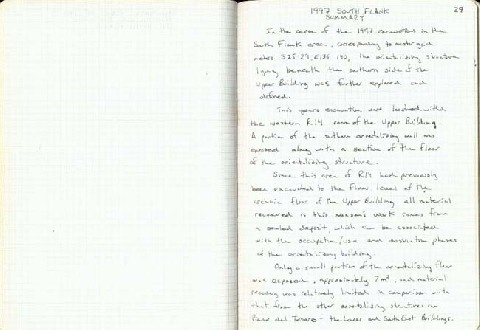 1997 SOUTH FLANK
SUMMARY
29
In the course of the 1997 excavations in the
South Flank area, corresponding to
the orientalizing structure
lying beneath the southern side of the
Upper Building was further explored and
defined.
This years excavation was located within
the western R.14 zone of the Upper Building
A portion of the southern orientalizing wall was
exposed along with a section of the floor
of the orientalizing structure.
Since this area of R14 had previously
been excavated to the floor level of the
archaic floor of the Upper Building all material
recovered in this season's work comes from
a sealed deposit, which can be associated
with the occupation/use and phases
of the orientalizing building.
Only a small portion of the orientalizing floor
was exposed, approximately 7m², and material
recovery was relatively limited in comparison with
that from the other orientalizing structures on
Piano del Tesoro - the Lower and Southeast Buildings.